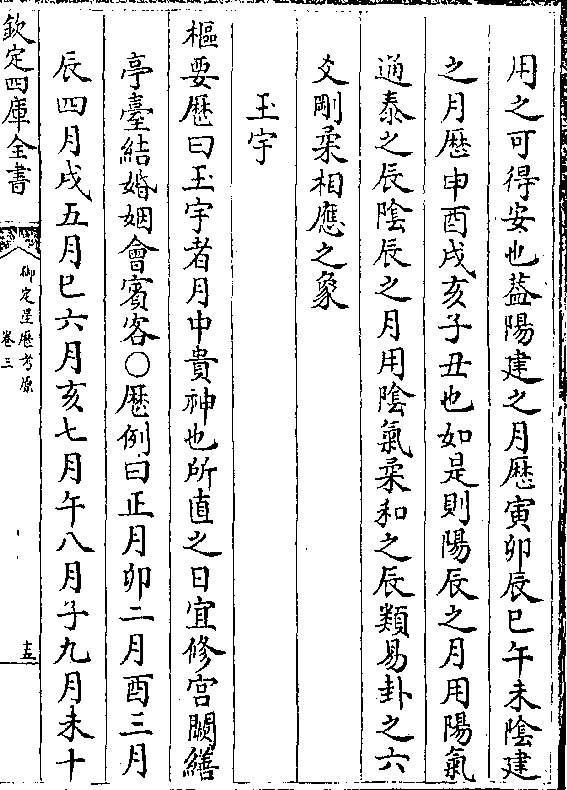 用之可得安也葢陽建之月厯寅卯辰巳午未陰建
之月厯申酉戌亥子丑也如是則陽辰之月用陽氣
通泰之辰陰辰之月用陰氣柔和之辰類易卦之六
爻剛柔相應之象
玉宇
樞要厯曰玉宇者月中貴神也所直之日宜修宫闕繕
亭臺結婚姻會賓客○厯例曰正月卯二月酉三月
辰四月戌五月巳六月亥七月午八月子九月未十
欽定四庫全書
御定星厯考原
卷三
十五